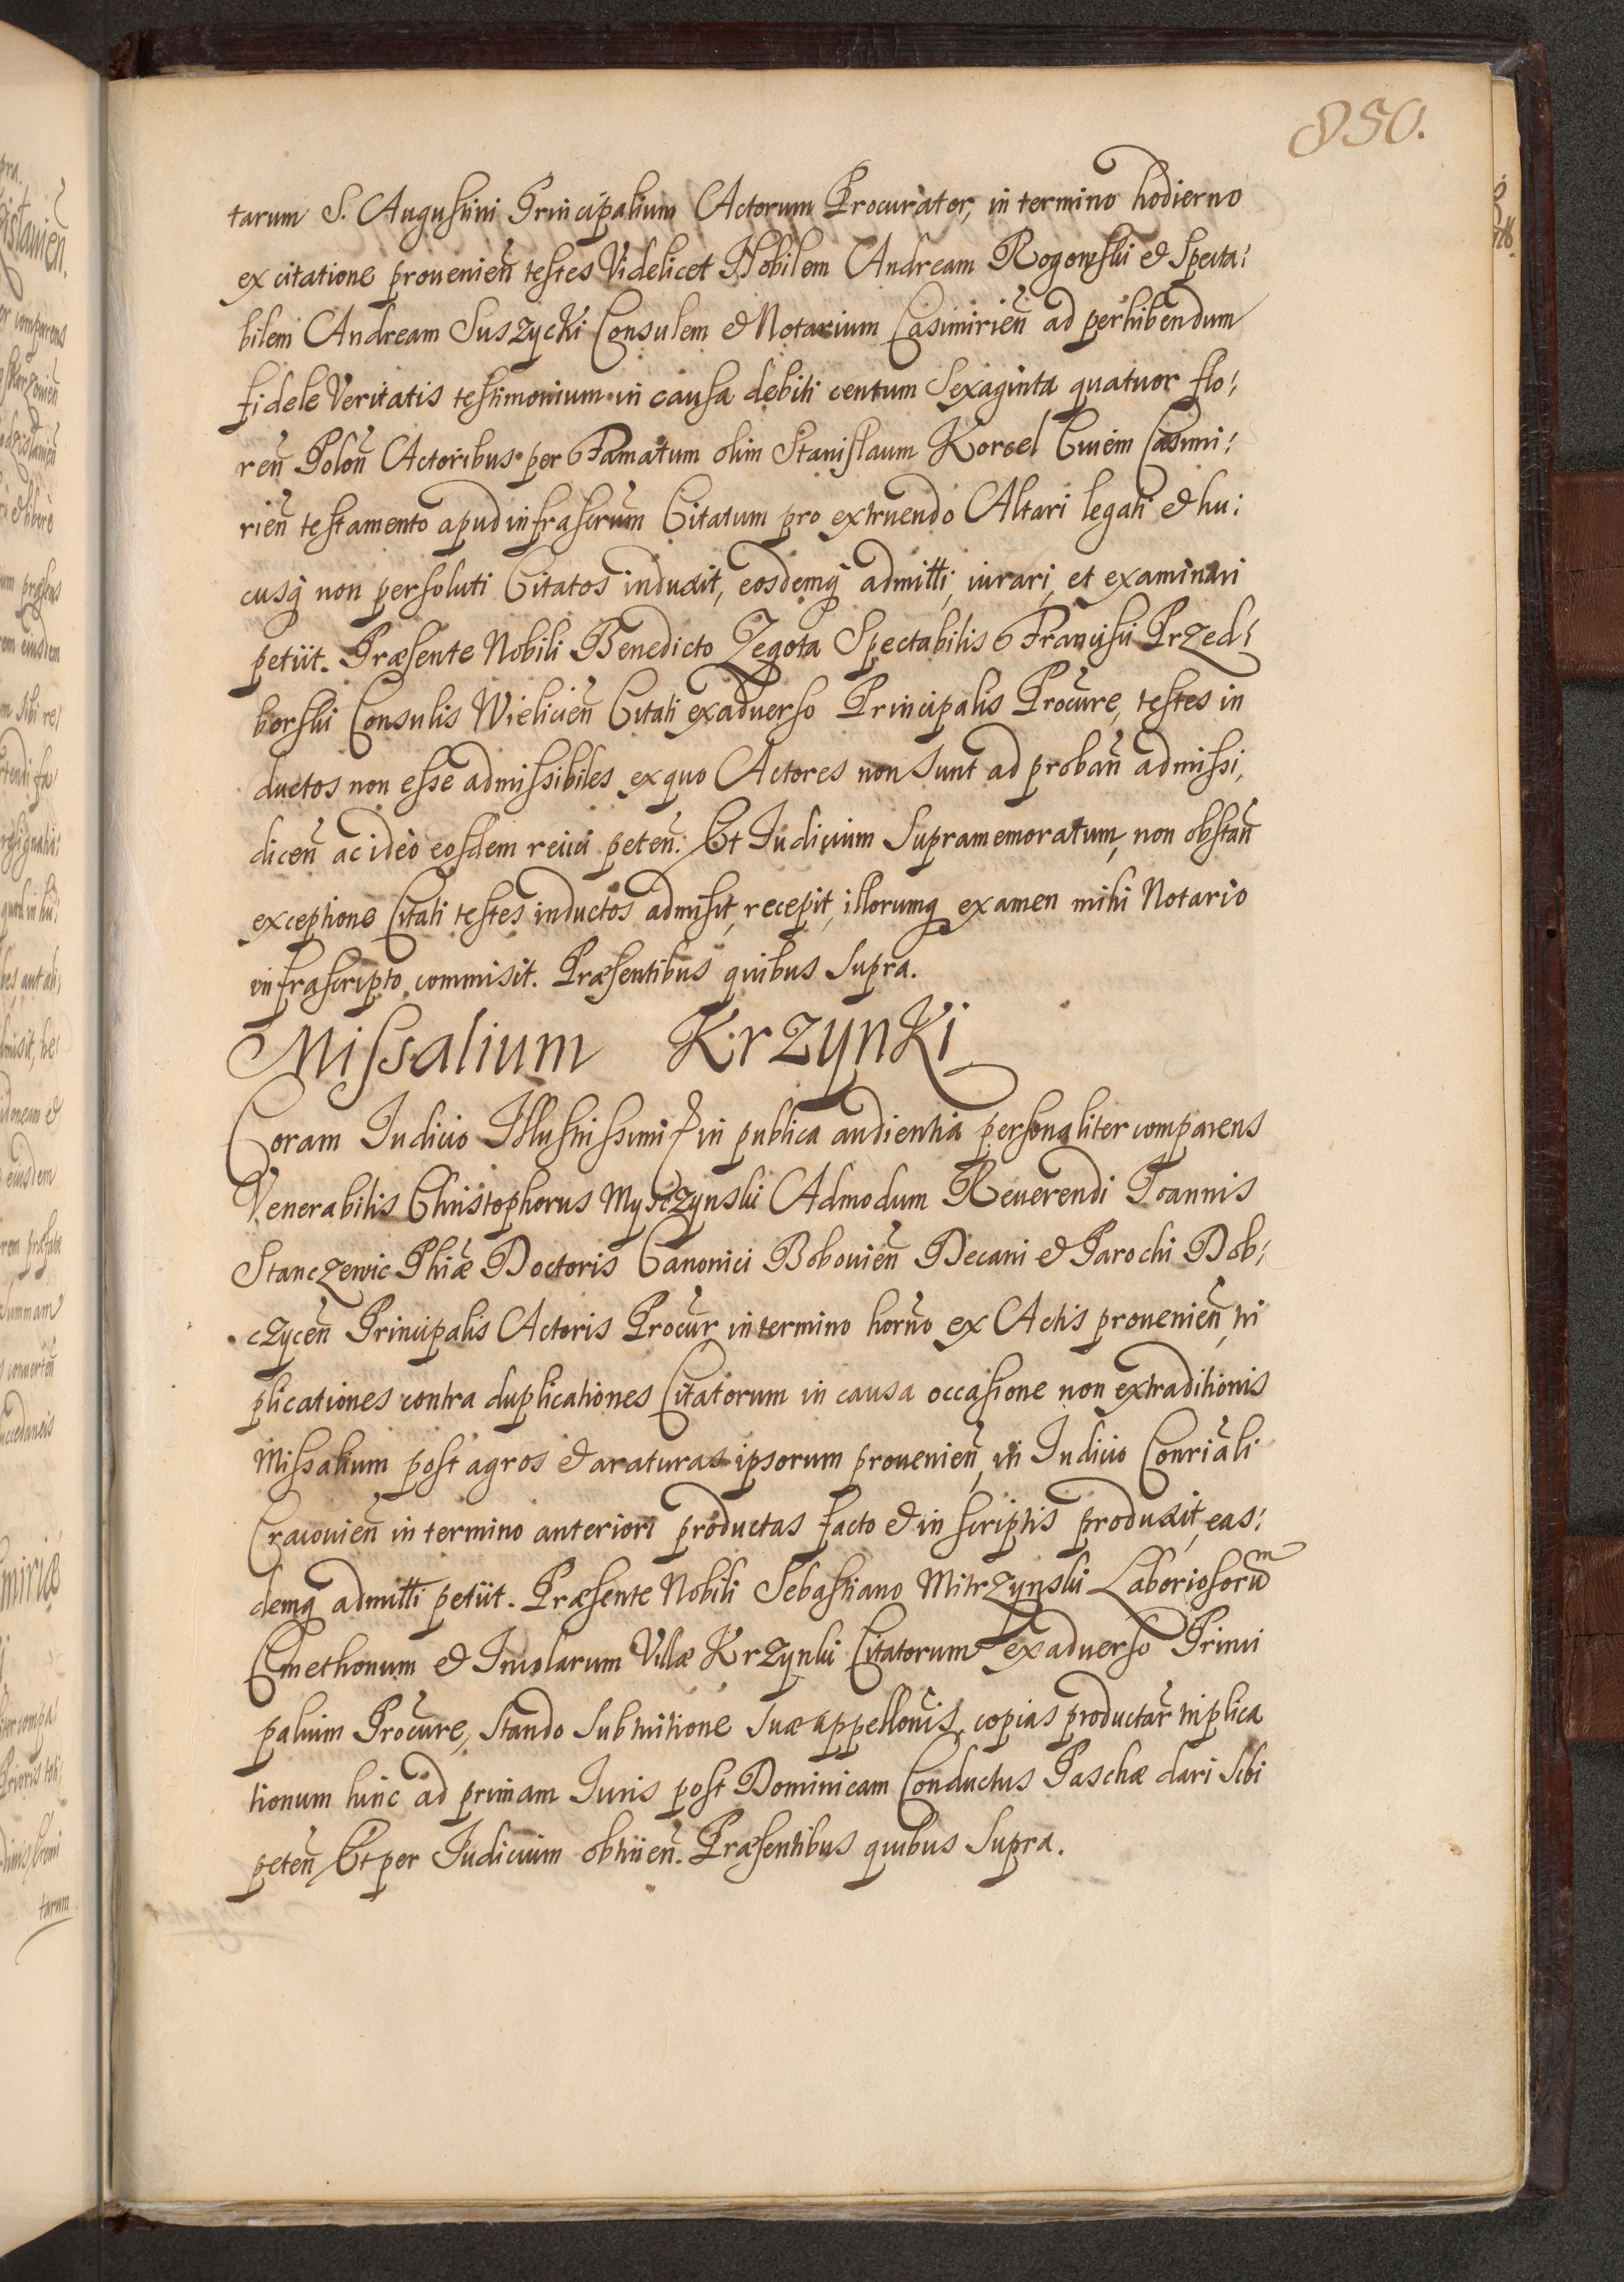 850.
tarum S. Augustini Principalium Actorum Procurator, in termino hodierno
ex citatione prouenien̄ testes Videlicet Nobilem Andream Rogowski & Specta:
bilem Andream Suszycki Consulem & Notarium Casimirien̄ ad perhibendum
fidele Veritatis testimonium in causa debiti centum Sexaginta quatuor flo:
ren̄ Polon̄ Actoribus per Famatum olim Stanislaum Korcel Ciuem Casimi:
rien̄ testamento apud infrascrūm Citatum pro extruendo Altari legati & hu:
cusq̨ non persoluti Citatos induxit, eosdemq̨ admitti, iurari, et examinari
petiit. Præsente Nobili Benedicto Zegota Spectabilis Francisci Przed:
borski Consulis Wielicien̄ Citati exaduerso Principalis Procūre, testes in
ductos non esse admissibiles ex quo Actores non sunt ad proban̄ admissi,
dicen̄ ac ideò eosdem reiici peten̄. Et Iudicium Supramemoratum, non obstan̄
exceptione Citati testes inductos admisit, recepit, illorumq̨ examen mihi Notario
infrascripto commisit. Præsentibus quibus Supra.
Missalium Krzynki
Coram Iudicio Illustrissimi & in publica audientia personaliter comparens
Venerabilis Christophorus Myszczynski Admodum Reuerendi Ioannis
Stanczewic Phiæ Doctoris Canonici Bobouien̄ Decani & Parochi Dob:
czycen̄ Principalis Actoris Procūr in termino horn̄o ex Actis prouenien̄, tri
plicationes contra duplicationes Citatorum in causa occasione non extraditionis
Missalium post agros & araturas ipsorum prouenien̄, in Iudicio Conr̄iali
Cracouien̄ in termino anteriori productas facto & in scriptis produxit, eas:
demq̨ admitti petiit. Præsente Nobili Sebastiano Mitrzynski Laboriosorūm
Cmethonum & Incolarum Villæ Krzynki Citatorum exaduerso Princi
palium Procūre, Stando Sub tuitione suæ appellōnis, copias productar̄ triplica
tionum hinc ad primam Iuris post Dominicam Conductus Paschæ dari Sibi
peten̄ Et per Iudicium obtinen̄. Præsentibus quibus Supra.